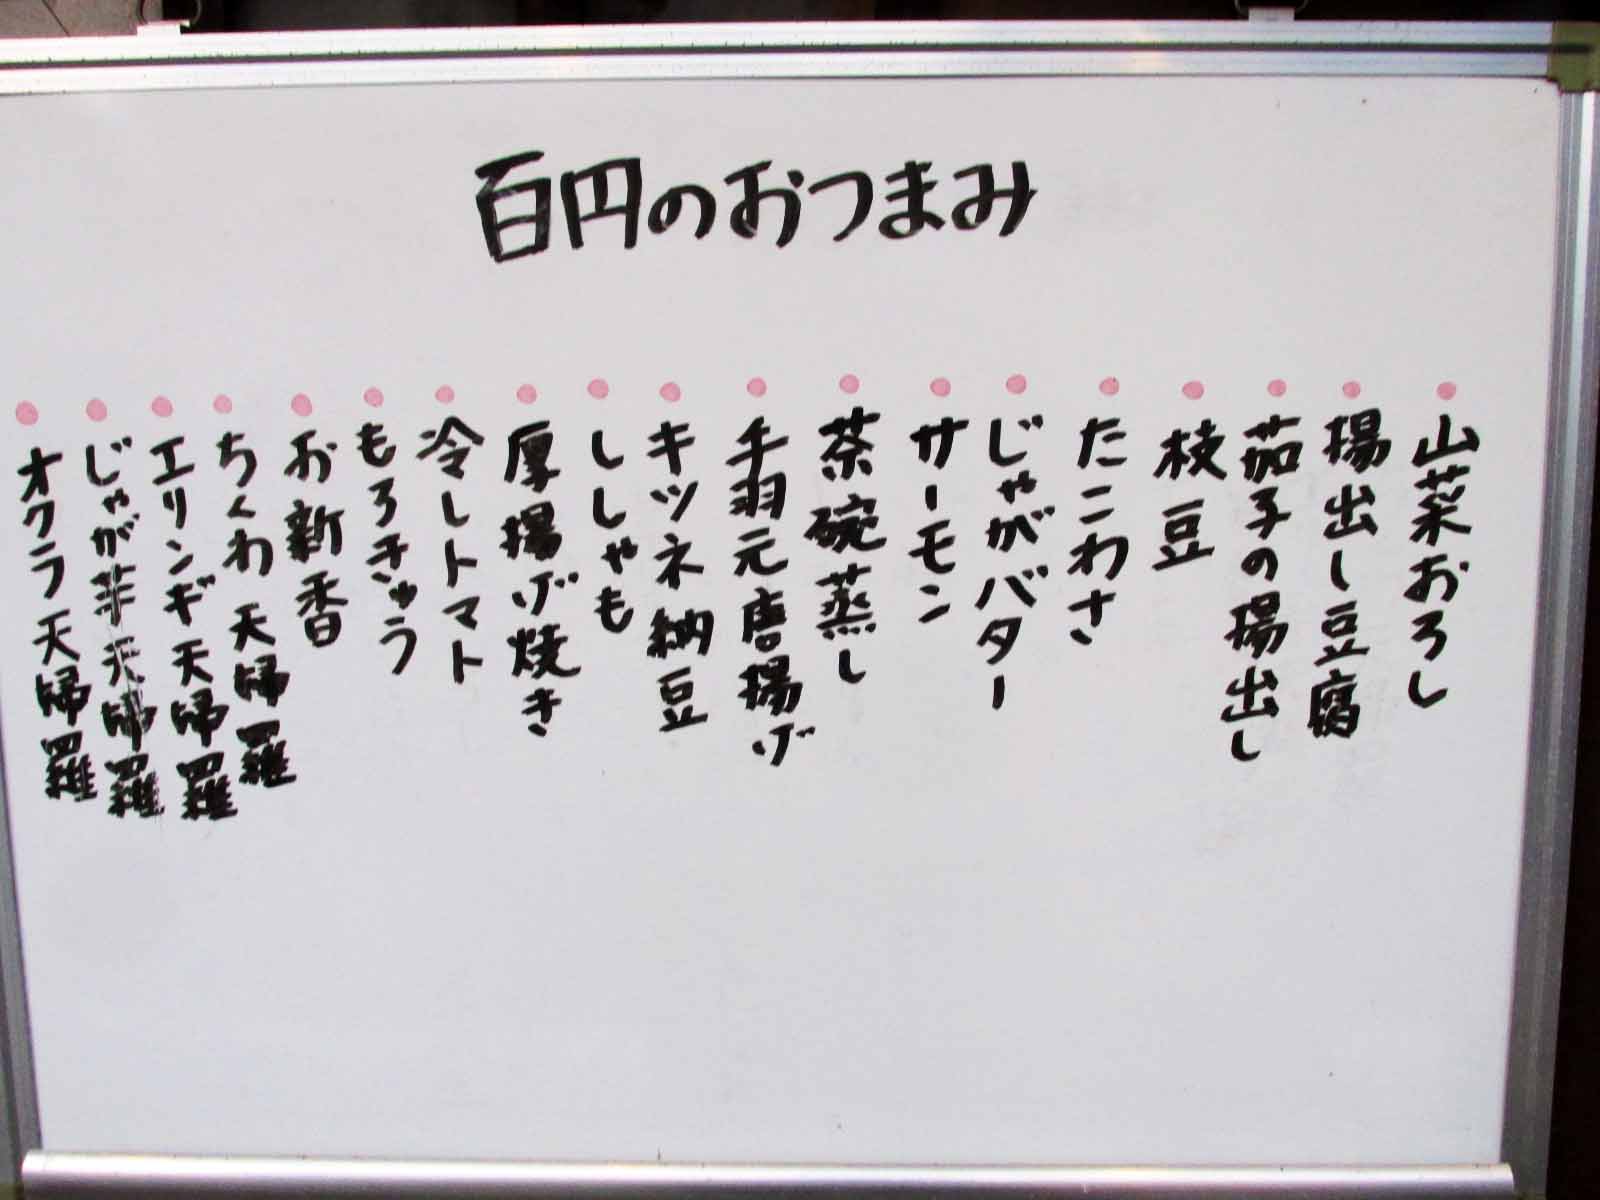 百円のおつまみ
山菜おろし
揚出し豆腐
茄子の揚出し
枝豆
たこわさ
じゃがバター
サーモン
茶碗蒸し
手羽元唐揚げ
キツネ納豆
ししゃも
厚揚げ焼き
冷しトマト
もろきゅう
お新香
ちくわ天婦羅
エリンギ天婦羅
じゃが芋天婦羅
オクラ天婦羅